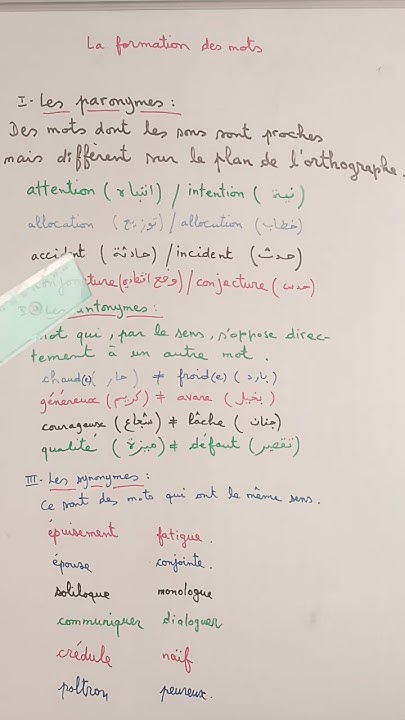 La formation des mots
I- Les paronymes :
Des mots dont les sons sont proches
mais diffèrent sur le plan de l'orthographe.
attention (انتباه) / intention (نية)
allocation (توزيع) / allocution (خطاب)
accident (حادثة) / incident (حدث)
cture (وضع اقتصادي) / conjecture (حدس)
Les antonymes :
mot qui, par le sens, s'oppose direc-
tement à un autre mot.
chaud(e) (حار) ≠ froid(e) (بارد)
généreux (كريم) ≠ avare (بخيل)
courageux (شجاع) ≠ lâche (جبان)
qualité (ميزة) ≠ défaut (تقصير)
III- Les synonymes :
Ce sont des mots qui ont le même sens.
épuisement fatigue.
épouse conjointe.
soliloque monologue
communiquer dialoguer
crédule naïf
poltron peureux.